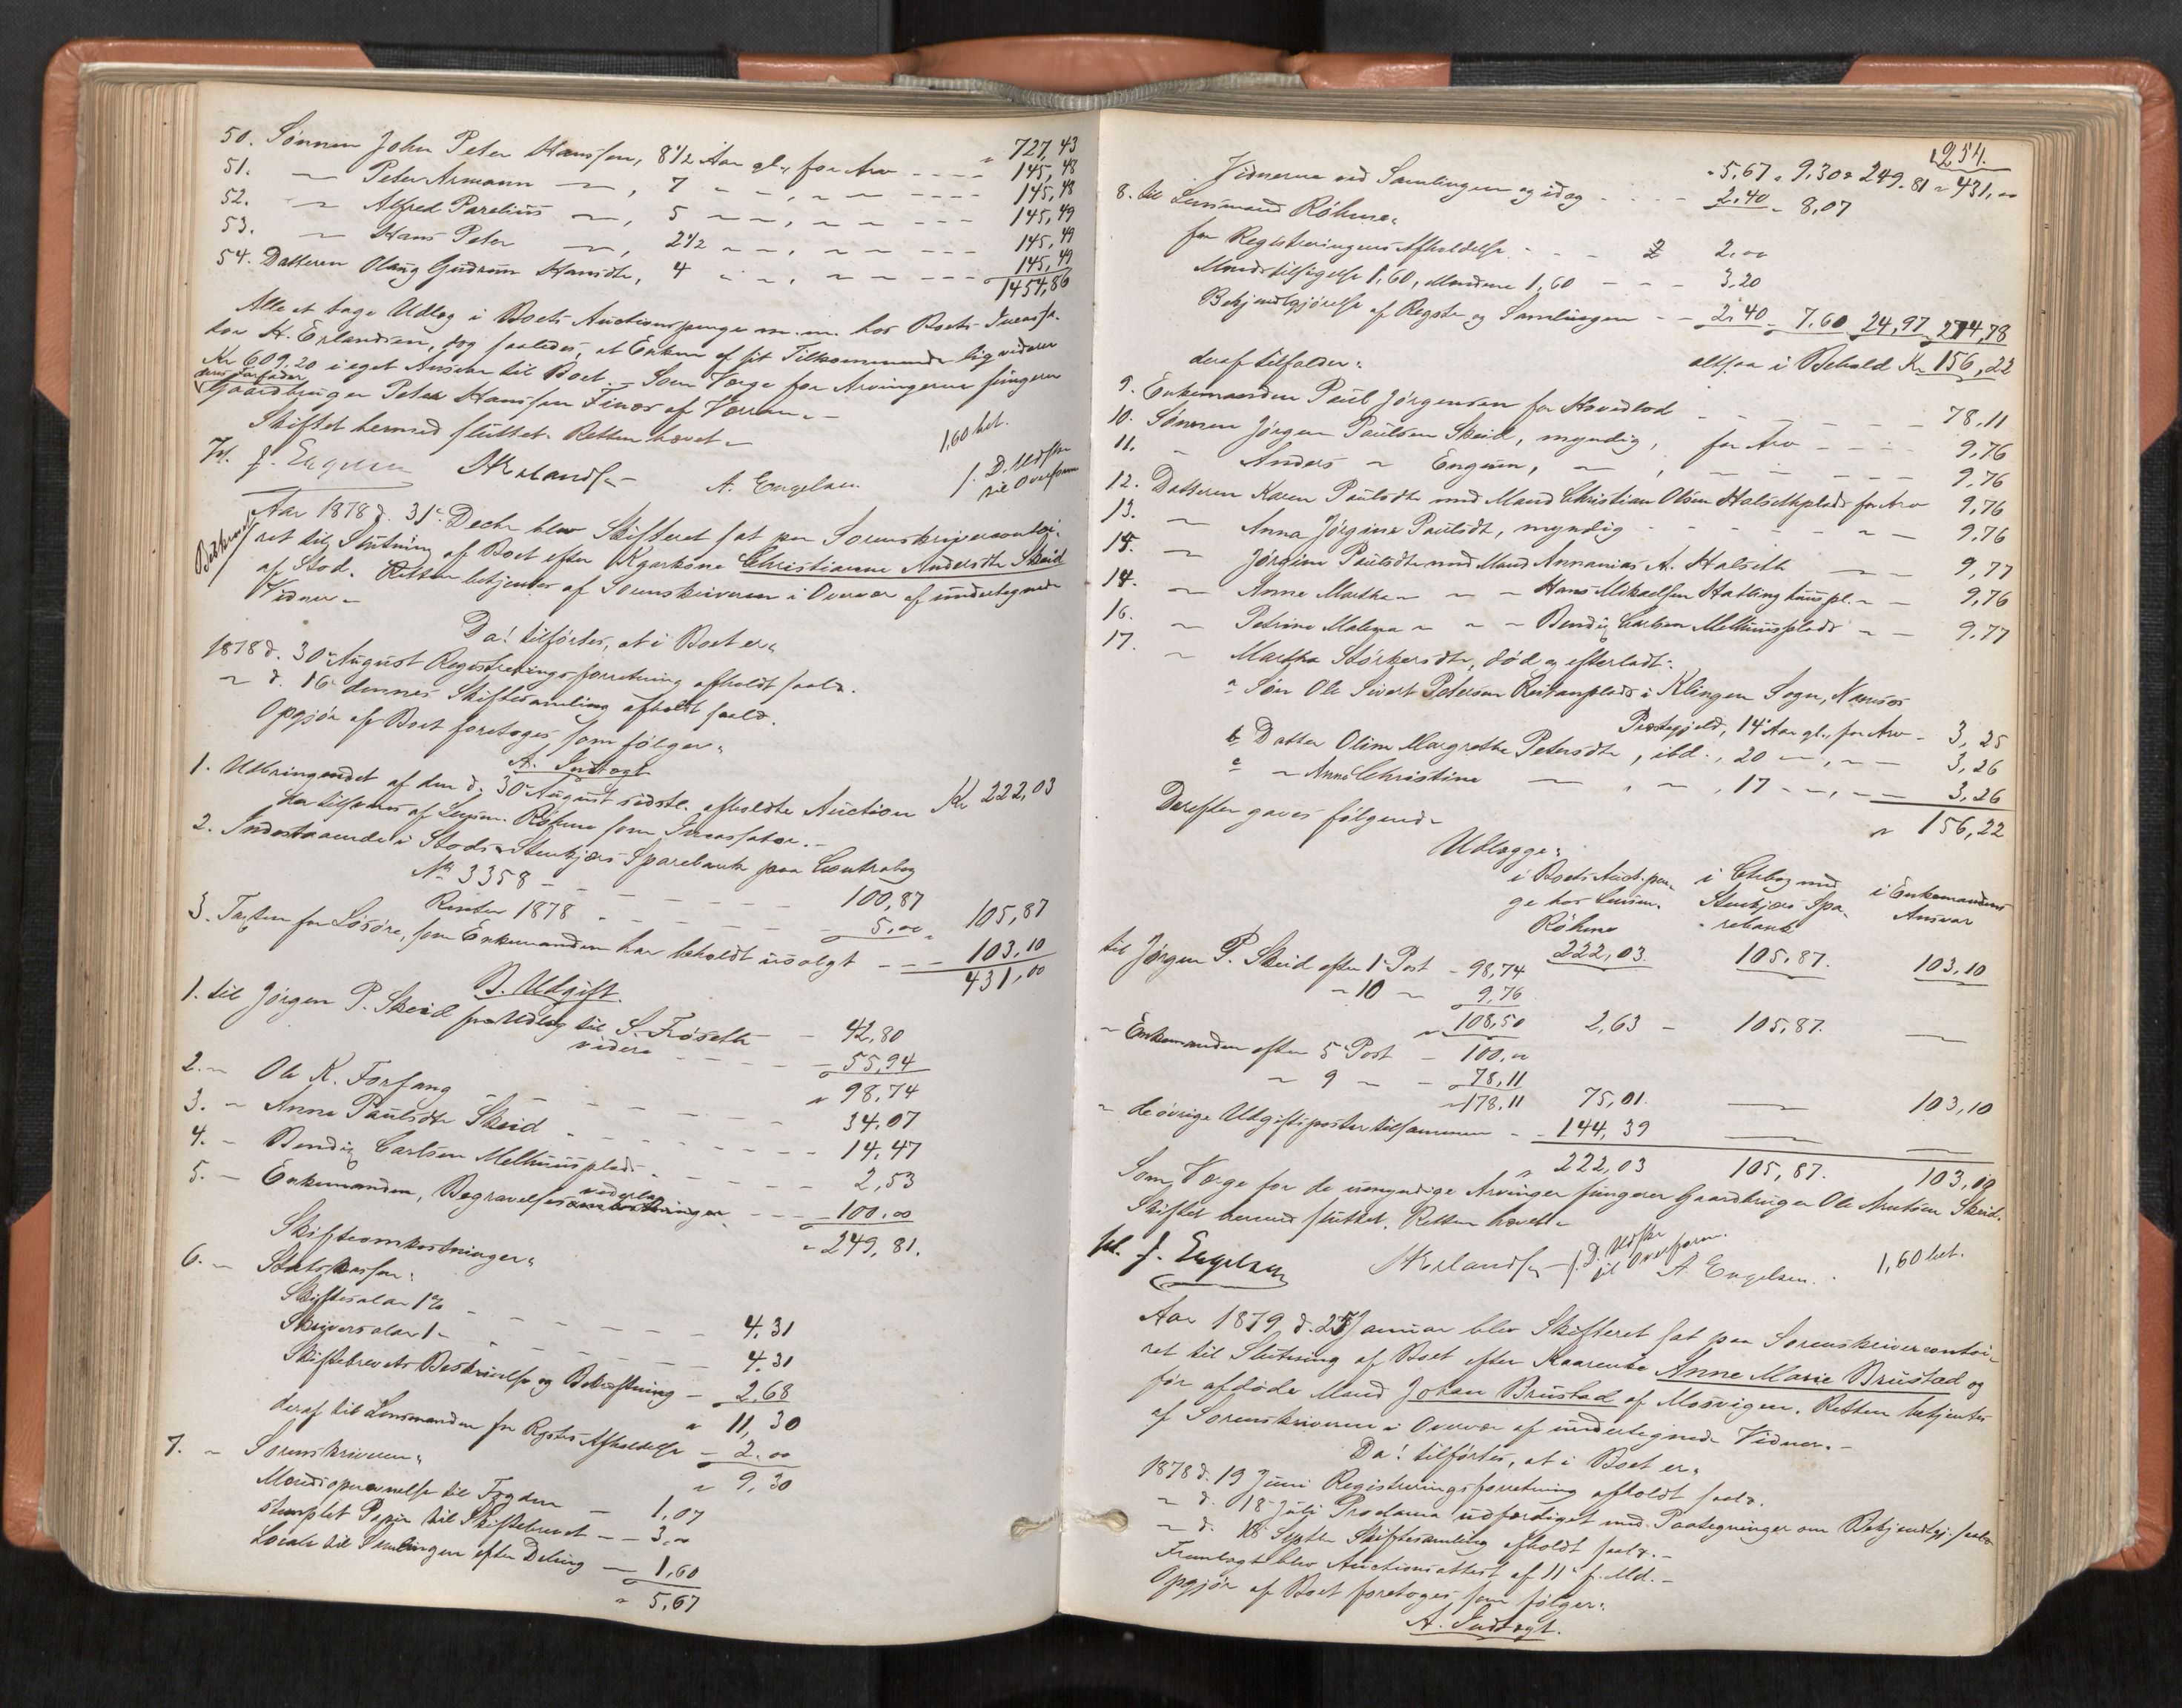 50. Sønnen John Peter Hanssen, 8 1/2 Aar gl., for Arv - - - - " 727,43
145,48
51. — Peter Armann — , 7 - - , - - - - - 145,48
52. — Alfred Parelius — , 5 - - , - - - - - 145,49
53. — Hans Peter — , 2 1/2 - - , - - - - - 145,49
54. Datteren Olaug Gudrun Hansdtr, 4 - - , - - - - - 145,49
1454,86
Alle at tage Udlæg i Boets Auctionspenge m. m. hos Boets Incassa-
tor H. Erlandsen, dog saaledes, at Enken af sit Tilkommende ligviderer
Kr 609,20 i eget Ansvar til Boet. – Som Værge for Arvingerne fungerer
deres Farfader
Gaardbruger Peter Hanssen Finæs af Værran. –
Skiftet hermed sluttet. Retten hævet. –
1,60 bet.
J. Engelsen HErlandsen A. Engelsen
f. D. Udskr.
til Overform
Aar 1878 d. 31te Decbr blev Skifteret sat paa Sorenskrivercontoi-
ret til Slutning af Boet efter Kaarkone Christianna Andersdtr Skeid
af Stod. Retten betjentes af Sorenskriveren i Overvær af undertegnede
Vidner. –
Da! tilførtes, at i Boet er:
1878 d. 30te August Registreringsforretning afholdt saal.
" d. 16 dennes Skiftesamling afholdt saal.
Opgjør af Boet foretoges som følger:
A. Indtægt
1. Udbringendet af den d. 30te August sidstl. afholdte Auction Kr 222,03
der tilsvares af Lensm. Røhme som Incassator. –
2. Indestaaende i Stods Stenkjærs Sparebank paa Contrabog
No 3358 - - - - - - 100,87
Renter 1878 - - - - - 5,00 " 105,87
3. Taxten for Løsøre, som Enkemanden har beholdt usolgt - - - 103,10
431,00
B. Udgift.
1. til Jørgen P. Skeid for Udlæg til S. Frøseth - 42,80
videre - - - - - 55,94
" 98,74
2. " Ole K. Forfang - - - - - 34,07
3. " Anne Paulsdtr Skeid - - - - - 14,47
4. " Bendix Carlsen Melhuusplads - - - - 2,53
5. " Enkemanden, Begravelses vederlag - - - 100,00
" 249,81.
Skifteomkostninger:
6. " Statskassen:
Skiftesalær 1% - - - - - 4,31
Skriversalær 1 " - - - - - 4,31
Skiftebrevets Beskrivelse og Bekræftning - 2,68
" 11,30
deraf til Lensmanden for Regstrs Afholdelse - 2,00
" 9,30
7. " Sorenskriveren:
Mændsopnævnelse til Fogden - 1,07
stemplet Papir til Skiftebrevet - - 3,00
Locale til Samlingen efter Deling - 1,60
" 5,67
254.
" 5,67 " 9,30 " 249,81 " 431,00
Vidnerne ved Samlingen og idag - - - 2,40 " 8,07
8. til Lensmand Røhme:
for Registreringens Afholdelse - - - 2,00
Mændstilsigelse 1,60, Mændene 1,60 - - - 3,20
Bekjendtgjørelse af Regstr. og Samlingen - - 2,40 " 7,60 24,97 274,78
altsaa i Behold Kr 156,22
deraf tilfalder:
9. Enkemanden Paul Jørgensen for Hovedlod - - - - - 78,11
10. Sønnen Jørgen Paulsen Skeid, myndig, for Arv - - - 9,76
11. " Anders " Engum, " , - - - - 9,76
12. Datteren Karen Paulsdtr med Mand Christian Olsen Halsethplads for Arv 9,76
13. — Anna Jørgina Paulsdt, myndig - - - - " — 9,76
14. — Jørgine Paulsdtr med Mand Annanias A. Halseth — — 9,77
15. — Anne Martha " " " Hans Mikaelsen Hatlinghuuspl. " — 9,76
16. — Petrine Malena " " " Bendix Carlsen Melhuusplads " — 9,77
17. " Martha Størkersdtr, død og efterladt:
a Søn Ole Sivert Petersen Reitanplads i Klingen Sogn, Namsos
Præstegjeld, 14 Aar gl., for Arv - 3,25
b Datter Oline Margrethe Petersdtr, ibd., 20 — , — — 3,26
c " Anne Christine — " — , 17 - - , - — 3,26
" 156,22
Derefter gaves følgende
Udlægge:
i Boets Auct.pen-
ge hos Lensm.
Røhme
222,03.
i Ctrbog med
Stenkjærs Spa-
rebank
105,87.
i Enkemandens
Ansvar
103,10
til Jørgen P. Skeid efter 1 Post - 98,74
" 10 " 9,76
" 108,50 2,63 - 105,87. —
" Enkemanden efter 5 Post - 100,00
" 9 " - 78,11
" 178,11 75,01. — 103,10
" de øvrige Udgiftsposter tilsammen - 144,39 — —
" 222,03 105,87. 103,10
Som Værge for de umyndige Arvinger fungerer Gaardbruger Ole Arntsen Skeid.
Skiftet hermed sluttet. Retten hævet. –
J. Engelsen HErlandsen f. D. Udskr. til Overform. A. Engelsen. 1,60 bet.
Aar 1879 d. 25 Januar blev Skifteret sat paa Sorenskrivercontoi-
ret til Slutning af Boet efter Kaarenke Anne Marie Brustad og
før afdøde Mand Johan Brustad af Mosvigen. Retten betjentes
af Sorenskriveren i Overvær af undertegnede Vidner. –
Da! tilførtes, at i Boet er:
1878 d. 19 Juni Registreringsforretning afholdt saal.
" d. 18 Juli Proclama udfærdiget med Paategninger om Bekjendtgj. saal.
" d. 18 Septbr Skiftesamling afholdt saal. –
Fremlagt blev Auctionsattest af 11te f. Md. –
Opgjør af Boet foretoges som følger:
A. Indtægt.